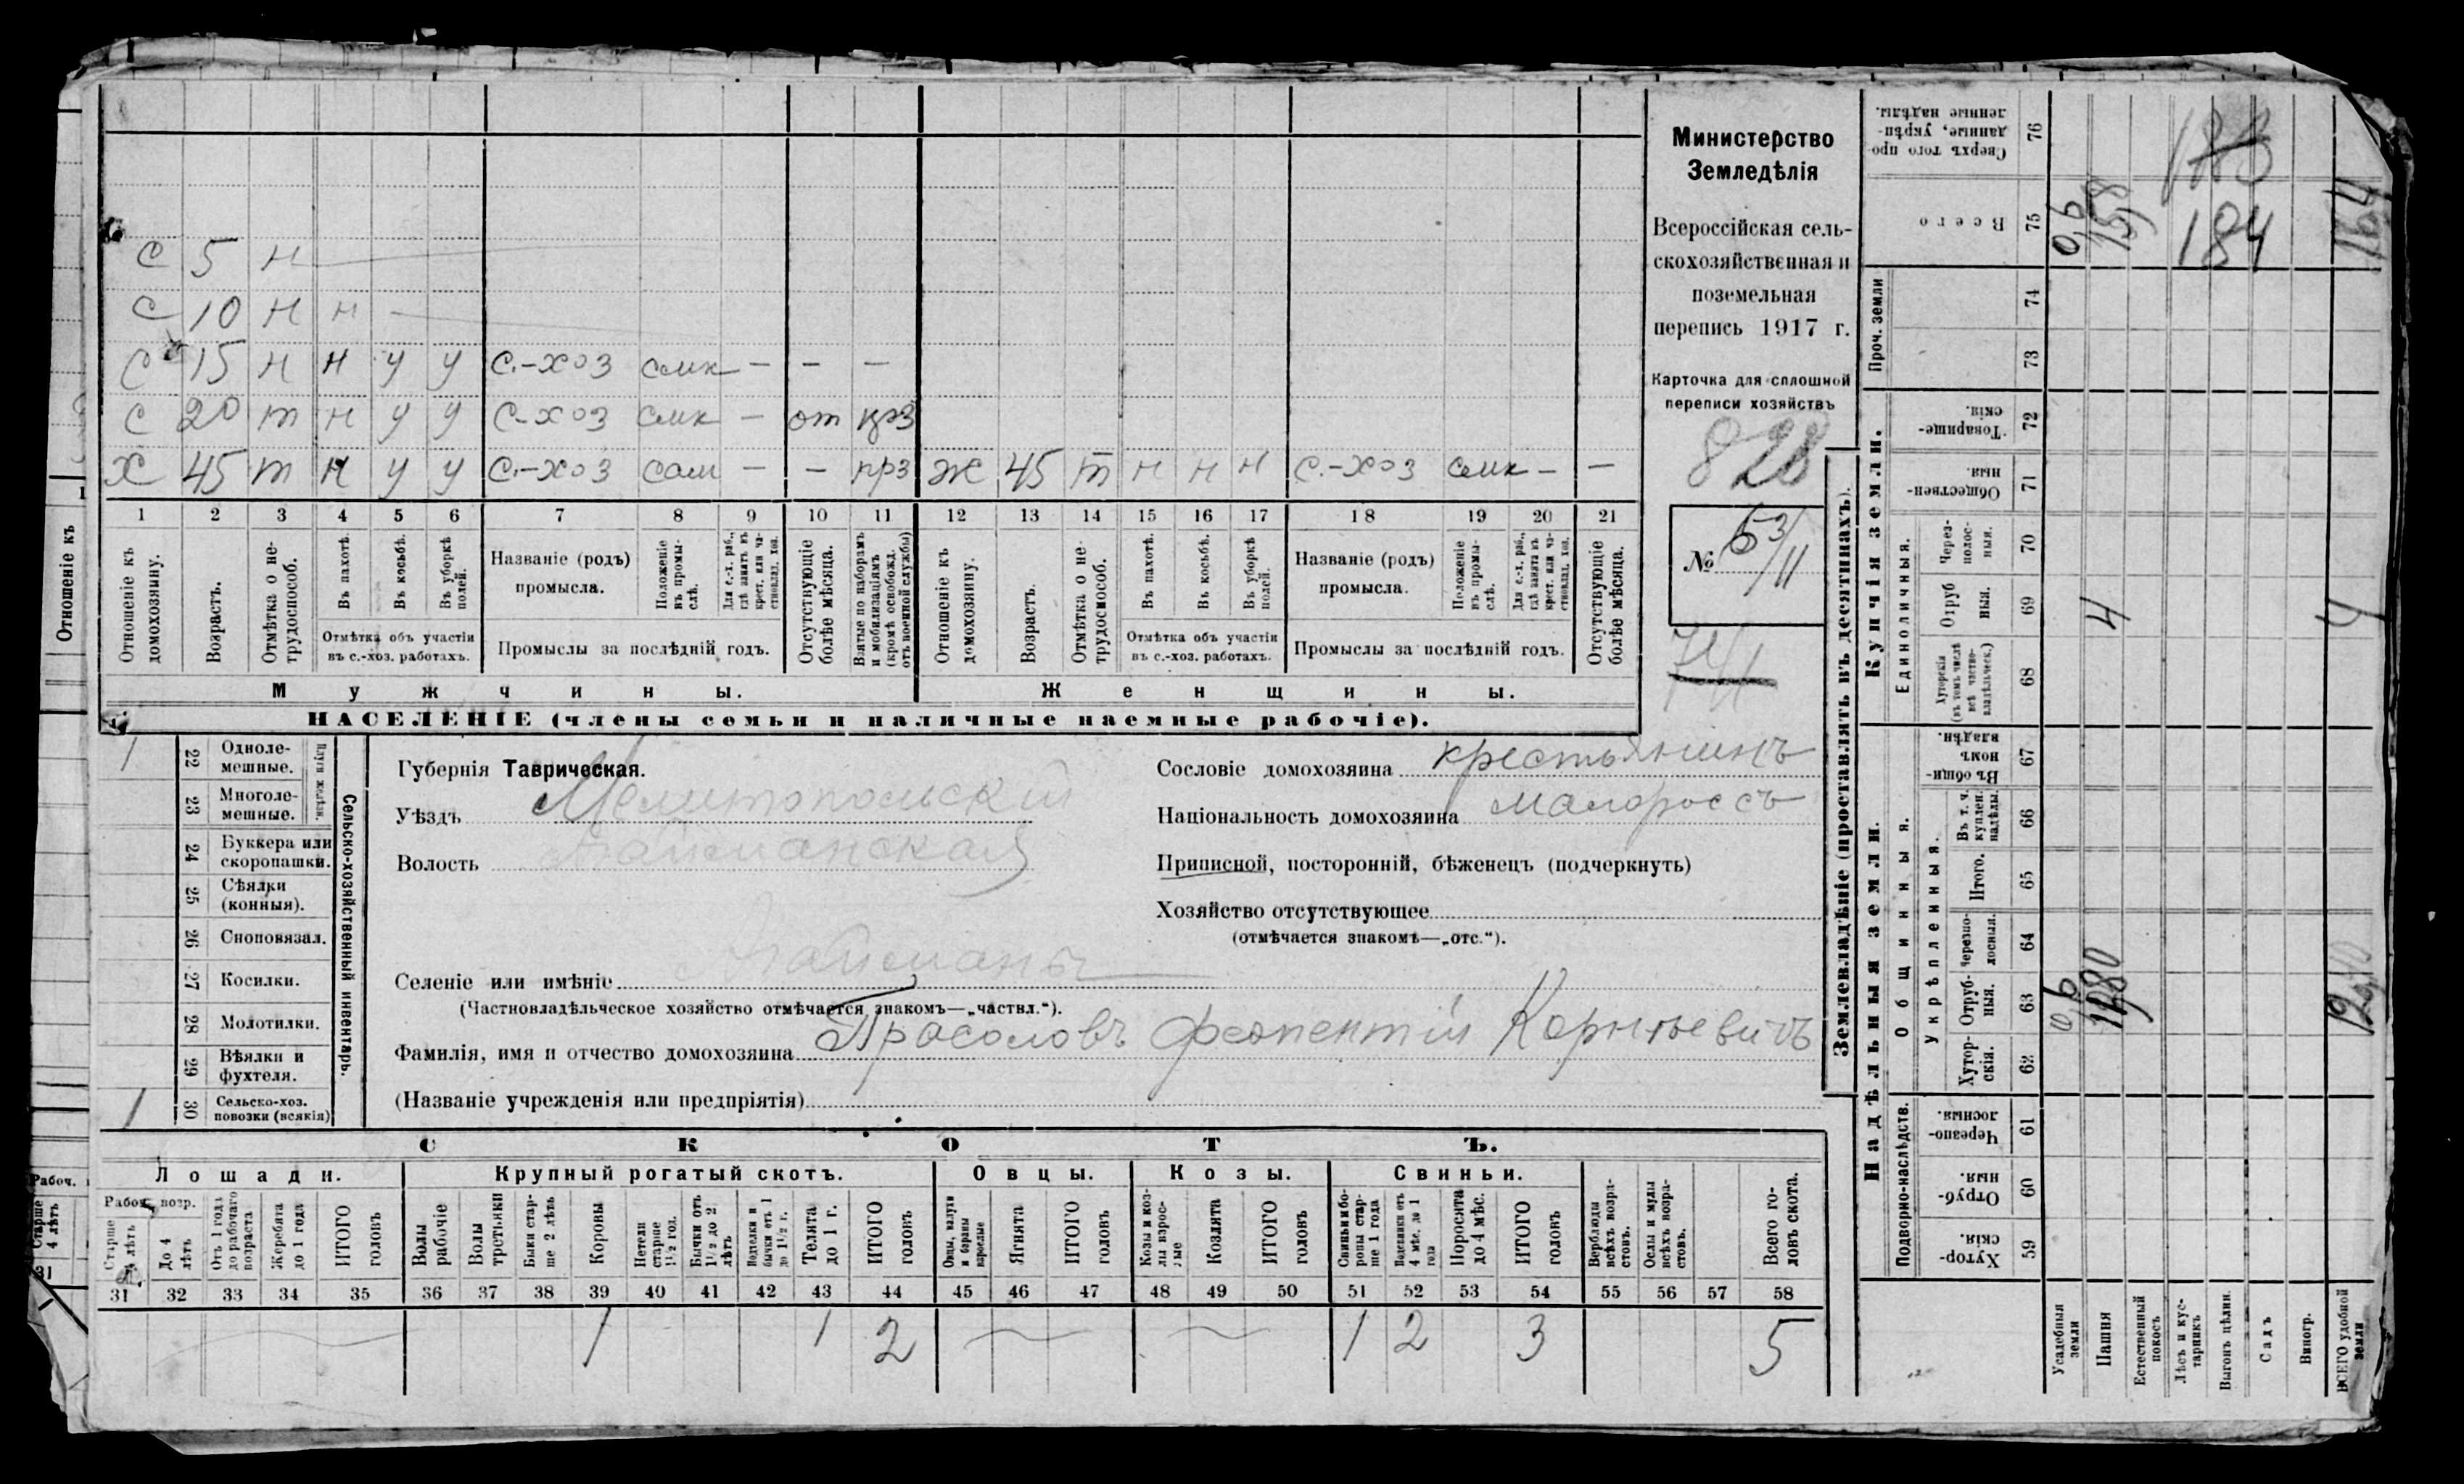 С 5 н
С 10 н н -
С 15 н н у у С.-хоз смк - - -
С 20 т н у у С-хоз смк - от
Х 45 т н у у С.-хоз сам - - прз Ж 45 т н н н С.-хоз смк - -
1 2 3 4 5 6 7 8 9 10 11 12 13 14 15 16 17 18 19 20 21
Отношеніе къ домохозяину.
Возрастъ.
Отмѣтка о не-трудоспособ.
Въ пахотѣ.
Въ косьбѣ.
Въ уборкѣ полей.
Отмѣтка объ участіи
въ с.-хоз. работахъ.
Названіе (родъ)
промысла.
Положеніе въ промы-слѣ.
Для с.-х. раб., гдѣ занятъ въ крест. или ча-стновлад. хоз.
Промыслы за послѣдній годъ.
Отсутствующіе болѣе мѣсяца.
Взятые по наборамъ и мобилизаціямъ (кромѣ освобожд. отъ военной службы)
Отношеніе къ домохозяину.
Возрастъ.
Отмѣтка о не-трудоспособ.
Въ пахотѣ.
Въ косьбѣ.
Въ уборкѣ полей.
Отмѣтка объ участіи
въ с.-хоз. работахъ.
Названіе (родъ)
промысла.
Положеніе въ промы-слѣ.
Для с.-х. раб., гдѣ занятъ въ крест. или ча-стновлад. хоз.
Промыслы за послѣдній годъ.
Отсутствующіе болѣе мѣсяца.
Мужчины. Женщины.
НАСЕЛЕНІЕ (члены семьи и наличные наемные рабочіе).
Министерство
Земледѣлія
Всероссійская сель-
скохозяйственная и
поземельная
перепись 1917 г.
Карточка для сплошной
переписи хозяйствъ
828
№ 53/11
74/1
1 22 Одноле-мешные.
23 Многоле-мешные.
Плуги желѣзн.
24 Буккера или скоропашки.
25 Сѣялки (конныя).
26 Сноповязал.
27 Косилки.
28 Молотилки.
29 Вѣялки и фухтеля.
1 30 Сельско-хоз. повозки (всякія)
Сельско-хозяйственный инвентарь.
Губернія Таврическая.
Уѣздъ Мелитопольскій
Волость
Селеніе или имѣніе
(Частновладѣльческое хозяйство отмѣчается знакомъ—„частвл.“).
Фамилія, имя и отчество домохозяина Прасоловъ Феопентій Корнѣевичъ
(Названіе учрежденія или предпріятія)
Сословіе домохозяина крестьянинъ
Національность домохозяина малороссъ
Приписной, посторонній, бѣженецъ (подчеркнуть)
Хозяйство отсутствующее
(отмѣчается знакомъ—„отс.“).
СКОТЪ.
Лошади. Крупный рогатый скотъ. Овцы. Козы. Свиньи.
Рабоч. возр.
Старше 4 лѣтъ
До 4 лѣтъ
Отъ 1 года до рабочаго возраста
Жеребята до 1 года
ИТОГО головъ
Волы рабочіе
Волы третьяки
Быки стар-ше 2 лѣтъ
Коровы
Нетели старше 1½ год.
Бычки отъ 1½ до 2 лѣтъ
Подтелки и бычки отъ 1 до 1½ г.
Телята до 1 г.
ИТОГО головъ
Овцы, валухи и бараны взрослые
Ягнята
ИТОГО головъ
Козы и коз-лы взрос-лые
Козлята
ИТОГО головъ
Свиньи и бо-ровы стар-ше 1 года
Подсвинки отъ 4 мѣс. до 1 года
Поросята до 4 мѣс.
ИТОГО головъ
Верблюды всѣхъ возра-стовъ.
Ослы и мулы всѣхъ возра-стовъ.
Всего го-ловъ скота.
31 32 33 34 35 36 37 38 39 40 41 42 43 44 45 46 47 48 49 50 51 52 53 54 55 56 57 58
1 1 2 1 2 3 5
Землевладѣніе (проставлять въ десятинахъ).
Купчія земли.
Надѣльныя земли.
Сверхъ того про-данные, укрѣп-ленные надѣлы. 76
Всего 75
Проч. земли 74 73
Товарище-скія. 72
Обществен-ныя. 71
Единоличныя.
Через-полос-ныя. 70
Отруб-ныя. 69
Хуторскія (въ томъ числѣ всѣ частно-владѣльческ.) 68
Въ общи-номъ владѣн. 67
Общинныя.
Укрѣпленныя.
Въ т. ч. куплен. надѣлы. 66
Итого. 65
Черезпо-лосныя. 64
Отруб-ныя. 63
Хутор-скія. 62
Подворно-наслѣдств.
Черезпо-лосныя. 61
Отруб-ныя. 60
Хутор-скія. 59
Усадебныя земли
Пашня
Естественный покосъ
Лѣсъ и кус-тарникъ
Выгонъ цѣлин.
Садъ
Виногр.
ВСЕГО удобной земли
0,6 15,8 184 164
4 4
0,6
Отношеніе къ
Рабоч.
Старше 4 лѣтъ
31